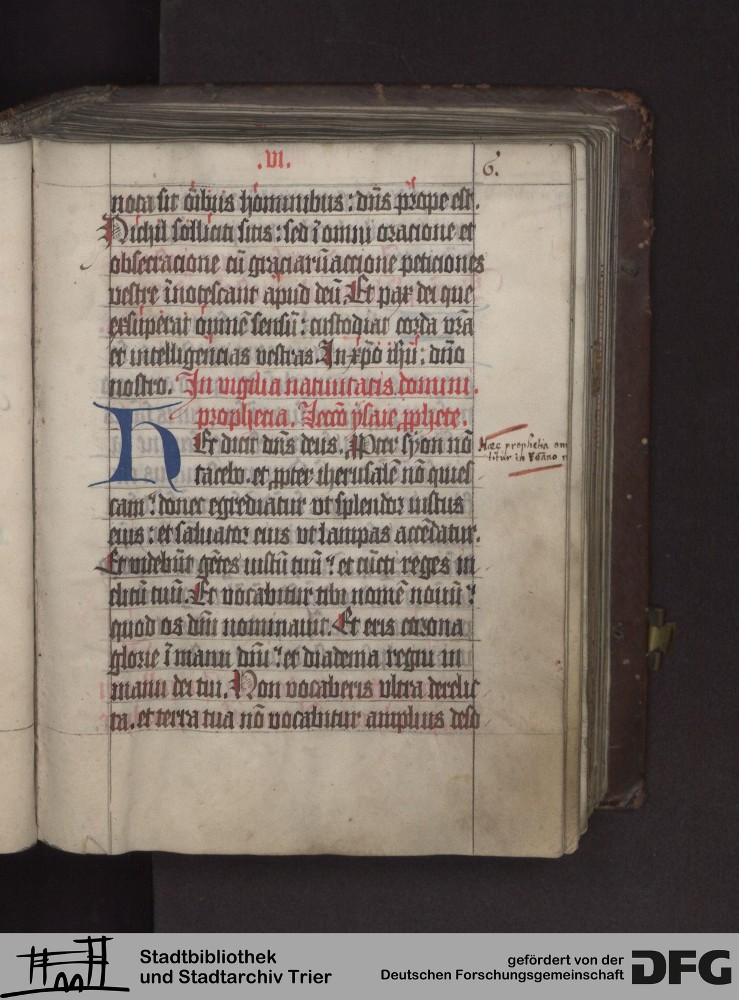 .VI.
6.
nota sit o͞ibus hominibus : dn͞s prope est.
Nichil solliciti sitis : sed ī omni oracione et
obsecracione cū graciarū accione peticiones
vestre īnotescant apud deū. Et pax dei que
exsuperat omnē sensū : custodiat corda vr͞a
et intelligencias vestras. In xp͞o ih͞u : dn͞o
nostro. In vigilia natiuitatis domini.
prophecia. Lecco ysaie ꝓphete.
Hec dicit dn͞s deus. Ꝓpter syon nō
tacebo. et ꝓpter iherusalē nō quies
cam : donec egrediatur vt splendor iustus
eius : et saluator eius vt lampas accēdatur.
Et videbūt gētes iustū tuū : et cūcti reges in
clitū tuū. Et vocabitur tibi nomē nouū :
quod os dn͞i nominauit. Et eris corona
glorie ī manu dn͞i : et diadema regni in
manu dei tui. Non vocaberis vltra derelic
ta. et terra tua nō vocabitur amplius deso
Haec prophetia om
titur in
Stadtbibliothek
und Stadtarchiv Trier
gefördert von der
Deutschen Forschungsgemeinschaft
DFG